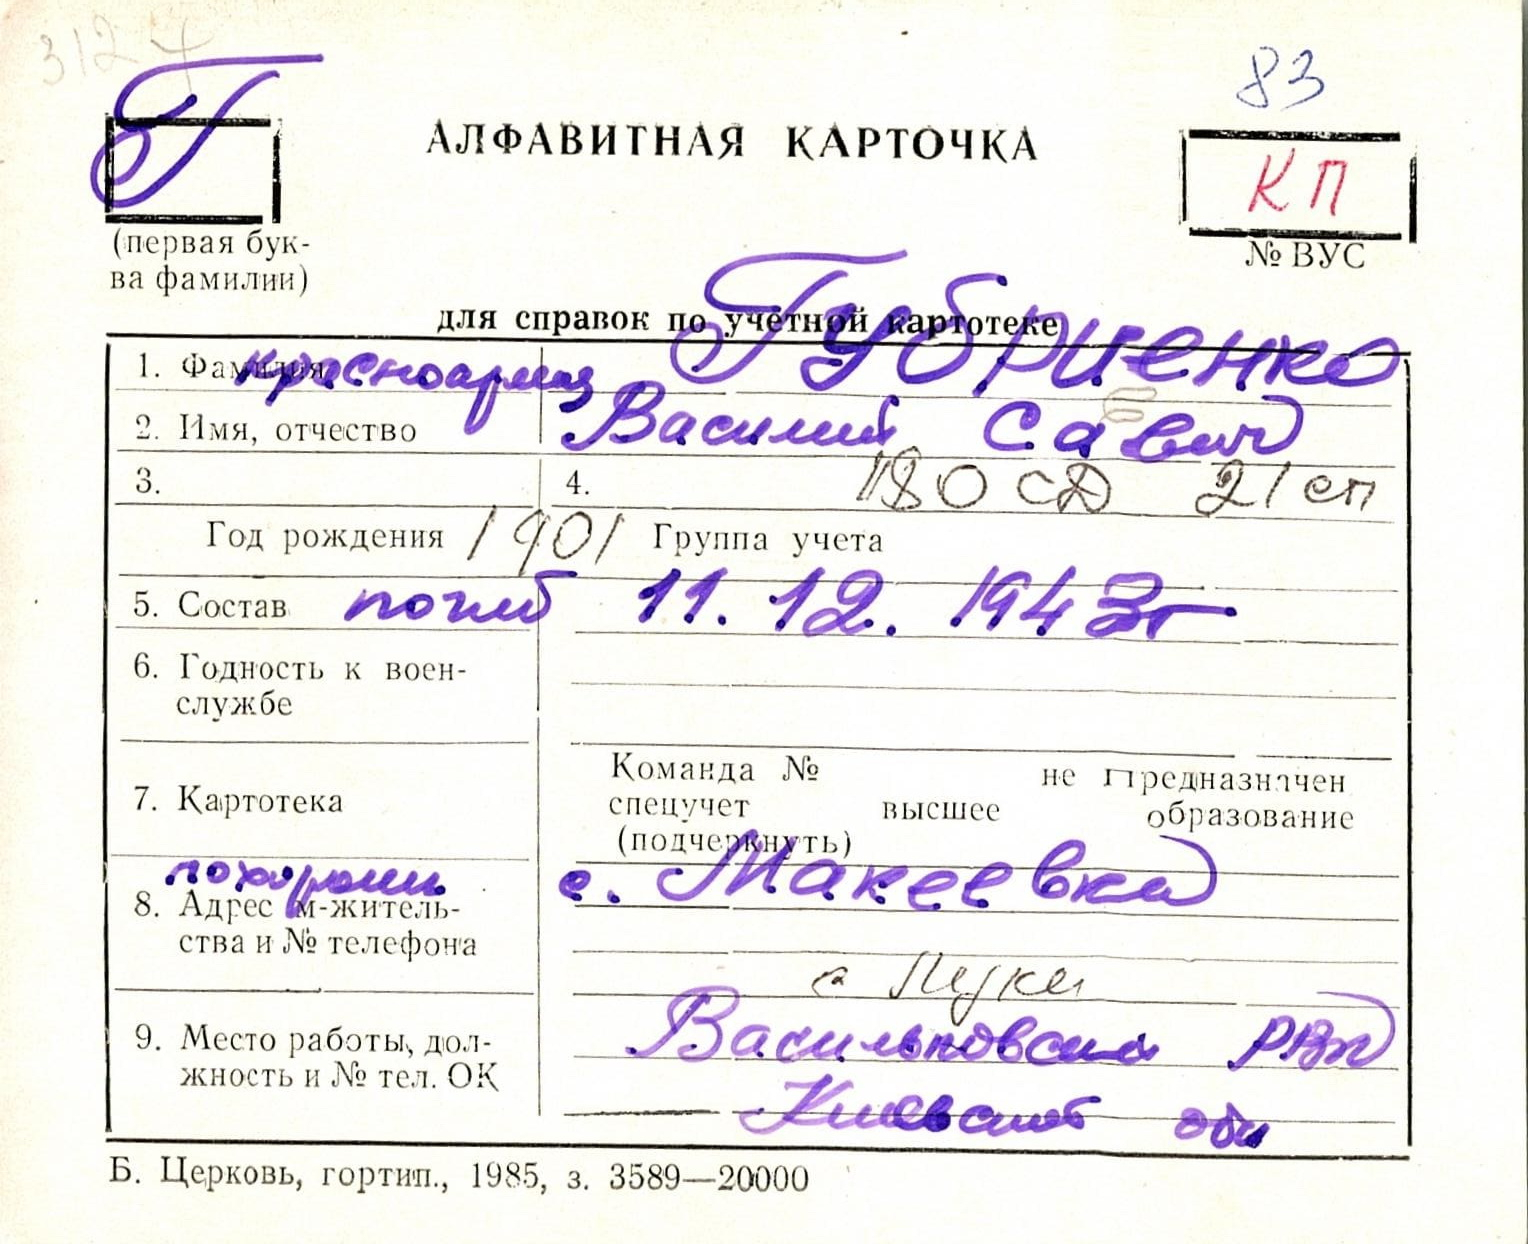 3127
83
Г
АЛФАВИТНАЯ КАРТОЧКА
КП
(первая бук-
ва фамилии)
№ ВУС
для справок по учетной картотеке
1. Фамилия красноармеец Губриенко
2. Имя, отчество Василий Савич
3. 4. 180 СД 21 сп
Год рождения 1901 Группа учета
5. Состав погиб 11.12.1943г
6. Годность к воен-
службе
7. Картотека
Команда № не предназначен
спецучет высшее образование
(подчеркнуть)
похоронен с. Макеевка
8. Адрес м-житель-
ства и № телефона
с Луки
9. Место работы, дол-
жность и № тел. ОК
Васильковский РВК
Киевской обл
Б. Церковь, гортип., 1985, з. 3589—20000